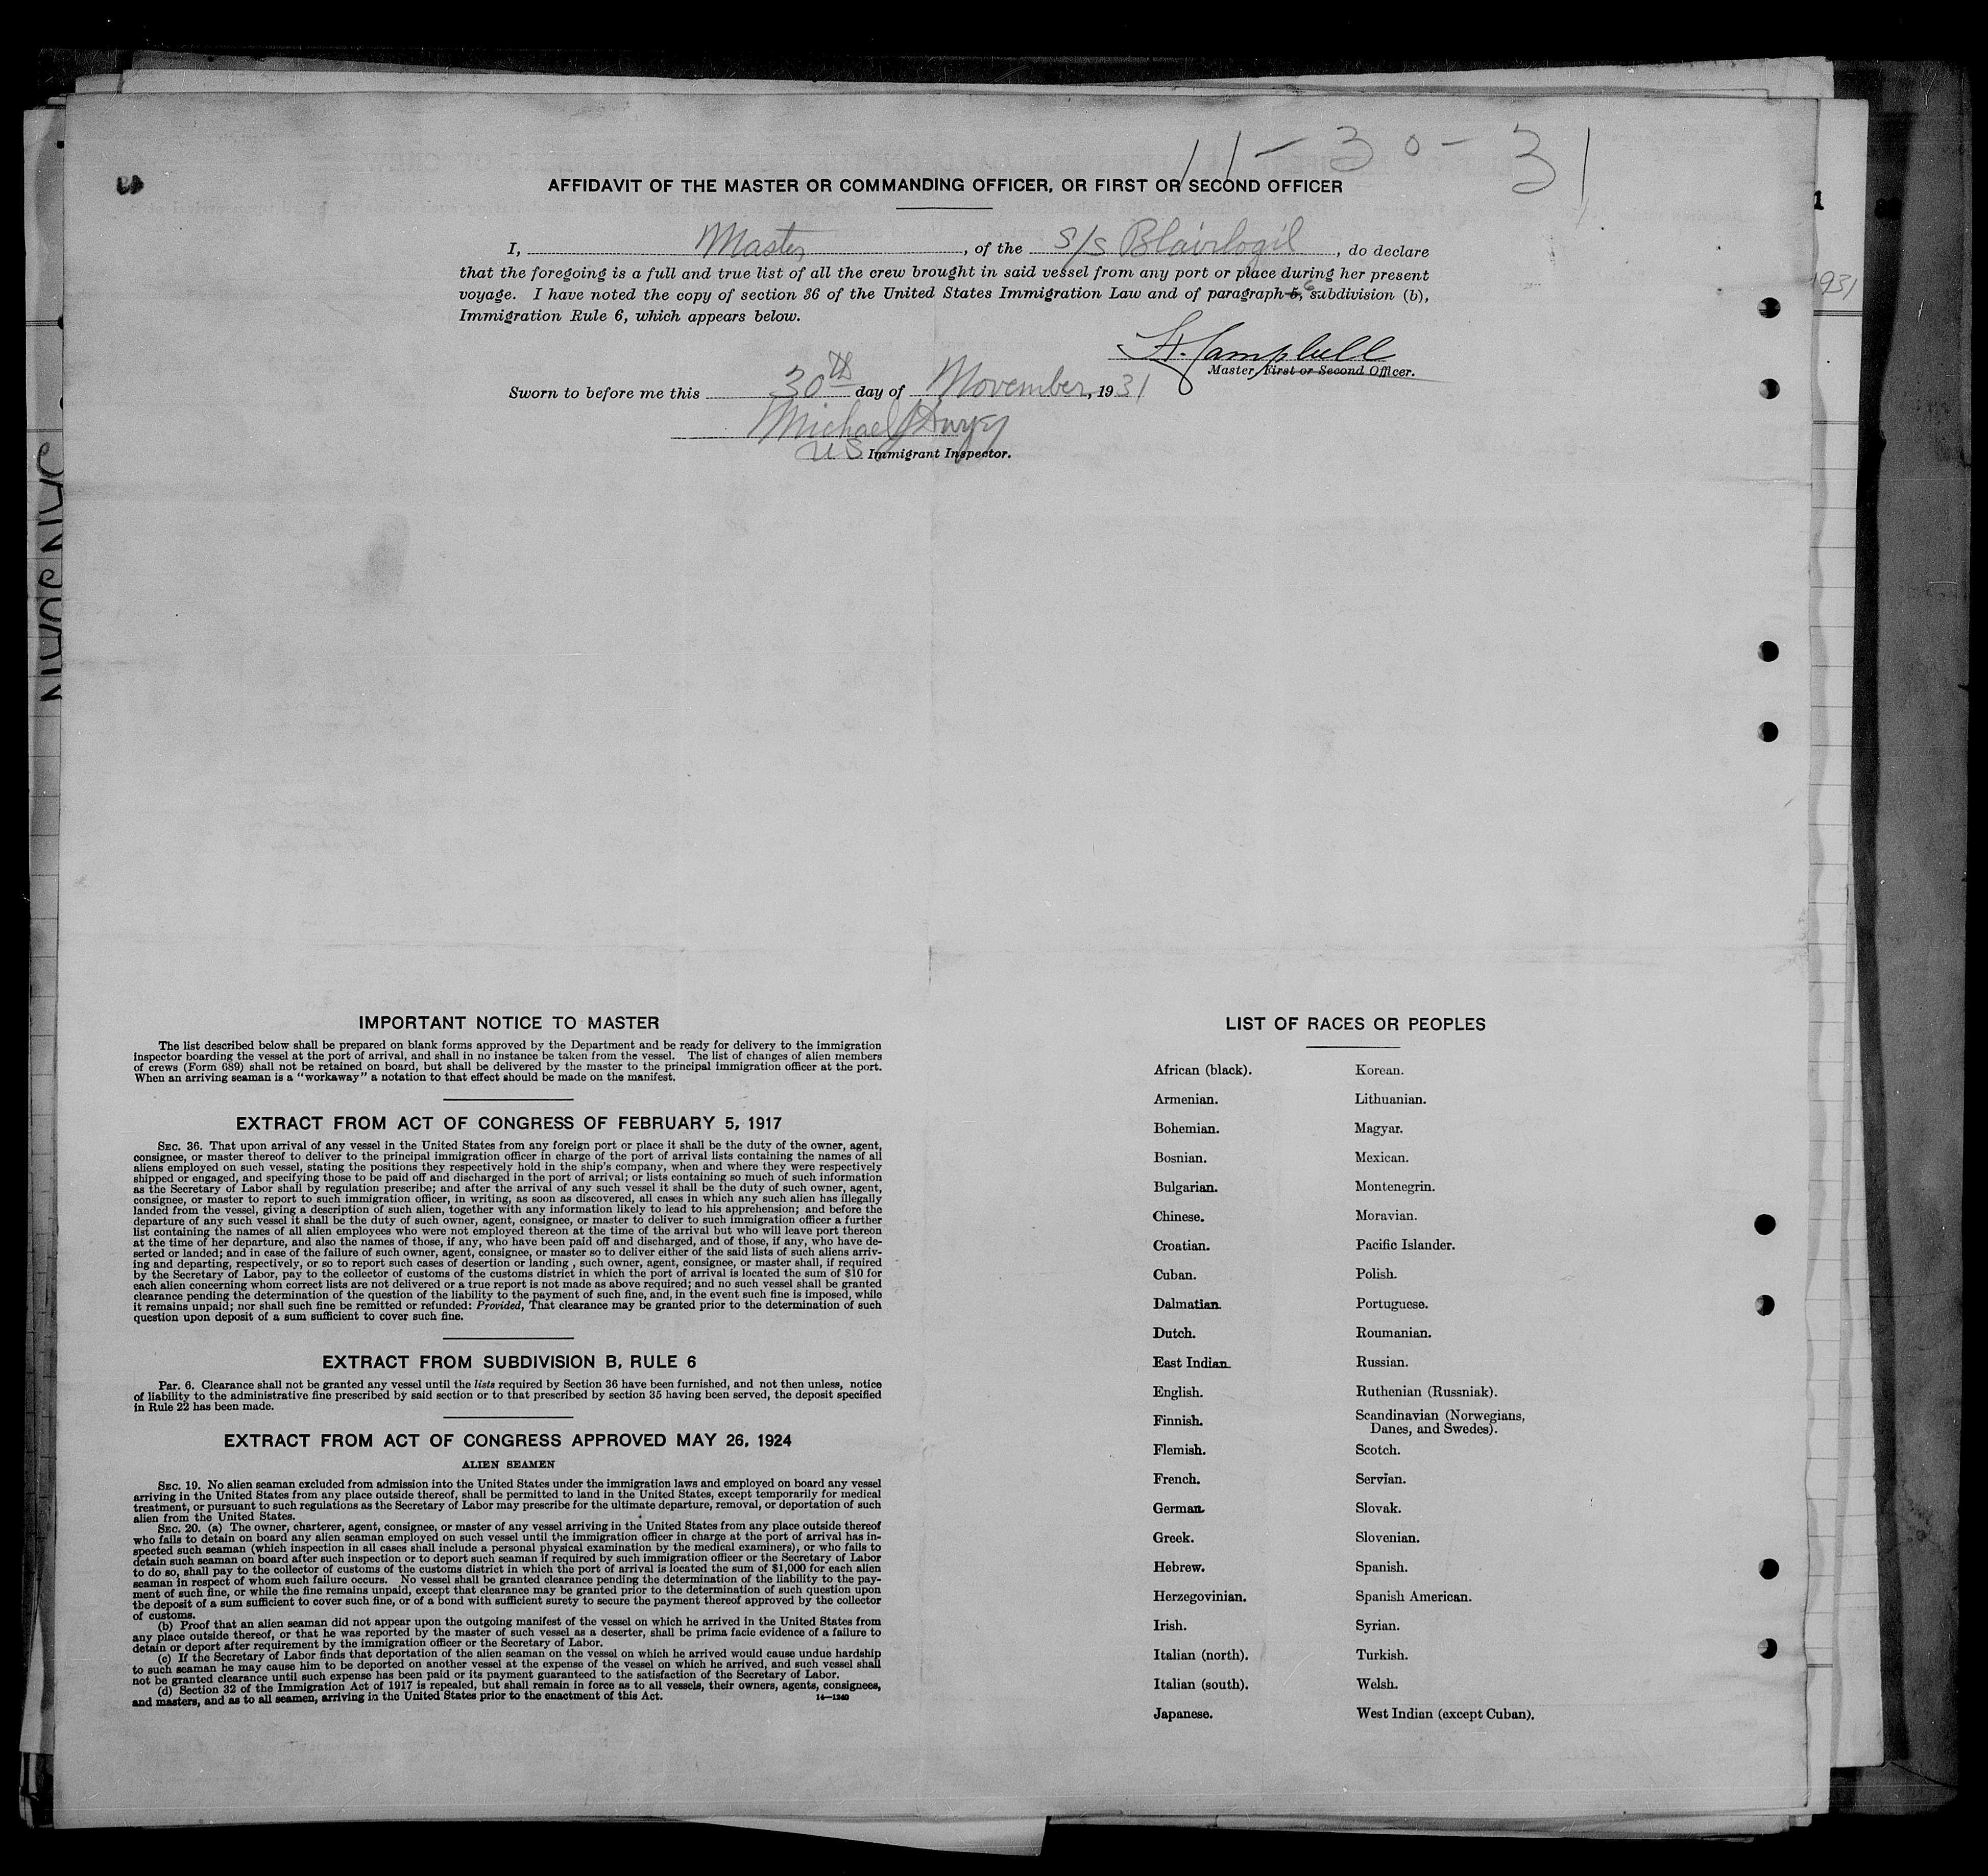 11-30-31
AFFIDAVIT OF THE MASTER OR COMMANDING OFFICER, OR FIRST OR SECOND OFFICER
I, Master, of the S/S Blairlogil, do declare
that the foregoing is a full and true list of all the crew brought in said vessel from any port or place during her present
voyage. I have noted the copy of section 36 of the United States Immigration Law and of paragraph 5, 6 subdivision (b),
Immigration Rule 6, which appears below.
Campbell
Master, First or Second Officer.
Sworn to before me this 30th day of November, 1931
Michael
US Immigrant Inspector.
1931
IMPORTANT NOTICE TO MASTER
The list described below shall be prepared on blank forms approved by the Department and be ready for delivery to the immigration
inspector boarding the vessel at the port of arrival, and shall in no instance be taken from the vessel. The list of changes of alien members
of crews (Form 689) shall not be retained on board, but shall be delivered by the master to the principal immigration officer at the port.
When an arriving seaman is a "workaway" a notation to that effect should be made on the manifest.
EXTRACT FROM ACT OF CONGRESS OF FEBRUARY 5, 1917
SEC. 36. That upon arrival of any vessel in the United States from any foreign port or place it shall be the duty of the owner, agent,
consignee, or master thereof to deliver to the principal immigration officer in charge of the port of arrival lists containing the names of all
aliens employed on such vessel, stating the positions they respectively hold in the ship's company, when and where they were respectively
shipped or engaged, and specifying those to be paid off and discharged in the port of arrival; or lists containing so much of such information
as the Secretary of Labor shall by regulation prescribe; and after the arrival of any such vessel it shall be the duty of such owner, agent,
consignee, or master to report to such immigration officer, in writing, as soon as discovered, all cases in which any such alien has illegally
landed from the vessel, giving a description of such alien, together with any information likely to lead to his apprehension; and before the
departure of any such vessel it shall be the duty of such owner, agent, consignee, or master to deliver to such immigration officer a further
list containing the names of all alien employees who were not employed thereon at the time of the arrival but who will leave port thereon
at the time of her departure, and also the names of those, if any, who have been paid off and discharged, and of those, if any, who have de-
serted or landed; and in case of the failure of such owner, agent, consignee, or master so to deliver either of the said lists of such aliens arriv-
ing and departing, respectively, or so to report such cases of desertion or landing, such owner, agent, consignee, or master shall, if required
by the Secretary of Labor, pay to the collector of customs of the customs district in which the port of arrival is located the sum of $10 for
each alien concerning whom correct lists are not delivered or a true report is not made as above required; and no such vessel shall be granted
clearance pending the determination of the question of the liability to the payment of such fine, and, in the event such fine is imposed, while
it remains unpaid; nor shall such fine be remitted or refunded: Provided, That clearance may be granted prior to the determination of such
question upon deposit of a sum sufficient to cover such fine.
EXTRACT FROM SUBDIVISION B, RULE 6
Par. 6. Clearance shall not be granted any vessel until the lists required by Section 36 have been furnished, and not then unless, notice
of liability to the administrative fine prescribed by said section or to that prescribed by section 35 having been served, the deposit specified
in Rule 22 has been made.
EXTRACT FROM ACT OF CONGRESS APPROVED MAY 26, 1924
ALIEN SEAMEN
SEC. 19. No alien seaman excluded from admission into the United States under the immigration laws and employed on board any vessel
arriving in the United States from any place outside thereof, shall be permitted to land in the United States, except temporarily for medical
treatment, or pursuant to such regulations as the Secretary of Labor may prescribe for the ultimate departure, removal, or deportation of such
alien from the United States.
SEC. 20. (a) The owner, charterer, agent, consignee, or master of any vessel arriving in the United States from any place outside thereof
who fails to detain on board any alien seaman employed on such vessel until the immigration officer in charge at the port of arrival has in-
spected such seaman (which inspection in all cases shall include a personal physical examination by the medical examiners), or who fails to
detain such seaman on board after such inspection or to deport such seaman if required by such immigration officer or the Secretary of Labor
to do so, shall pay to the collector of customs of the customs district in which the port of arrival is located the sum of $1,000 for each alien
seaman in respect of whom such failure occurs. No vessel shall be granted clearance pending the determination of the liability to the pay-
ment of such fine, or while the fine remains unpaid, except that clearance may be granted prior to the determination of such question upon
the deposit of a sum sufficient to cover such fine, or of a bond with sufficient surety to secure the payment thereof approved by the collector
of customs.
(b) Proof that an alien seaman did not appear upon the outgoing manifest of the vessel on which he arrived in the United States from
any place outside thereof, or that he was reported by the master of such vessel as a deserter, shall be prima facie evidence of a failure to
detain or deport after requirement by the immigration officer or the Secretary of Labor.
(c) If the Secretary of Labor finds that deportation of the alien seaman on the vessel on which he arrived would cause undue hardship
to such seaman he may cause him to be deported on another vessel at the expense of the vessel on which he arrived, and such vessel shall
not be granted clearance until such expense has been paid or its payment guaranteed to the satisfaction of the Secretary of Labor.
(d) Section 32 of the Immigration Act of 1917 is repealed, but shall remain in force as to all vessels, their owners, agents, consignees,
and masters, and as to all seamen, arriving in the United States prior to the enactment of this Act. 14—1240
LIST OF RACES OR PEOPLES
African (black).
Armenian.
Bohemian.
Bosnian.
Bulgarian.
Chinese.
Croatian.
Cuban.
Dalmatian.
Dutch.
East Indian.
English.
Finnish.
Flemish.
French.
German.
Greek.
Hebrew.
Herzegovinian.
Irish.
Italian (north).
Italian (south).
Japanese.
Korean.
Lithuanian.
Magyar.
Mexican.
Montenegrin.
Moravian.
Pacific Islander.
Polish.
Portuguese.
Roumanian.
Russian.
Ruthenian (Russniak).
Scandinavian (Norwegians,
Danes, and Swedes).
Scotch.
Servian.
Slovak.
Slovenian.
Spanish.
Spanish American.
Syrian.
Turkish.
Welsh.
West Indian (except Cuban).